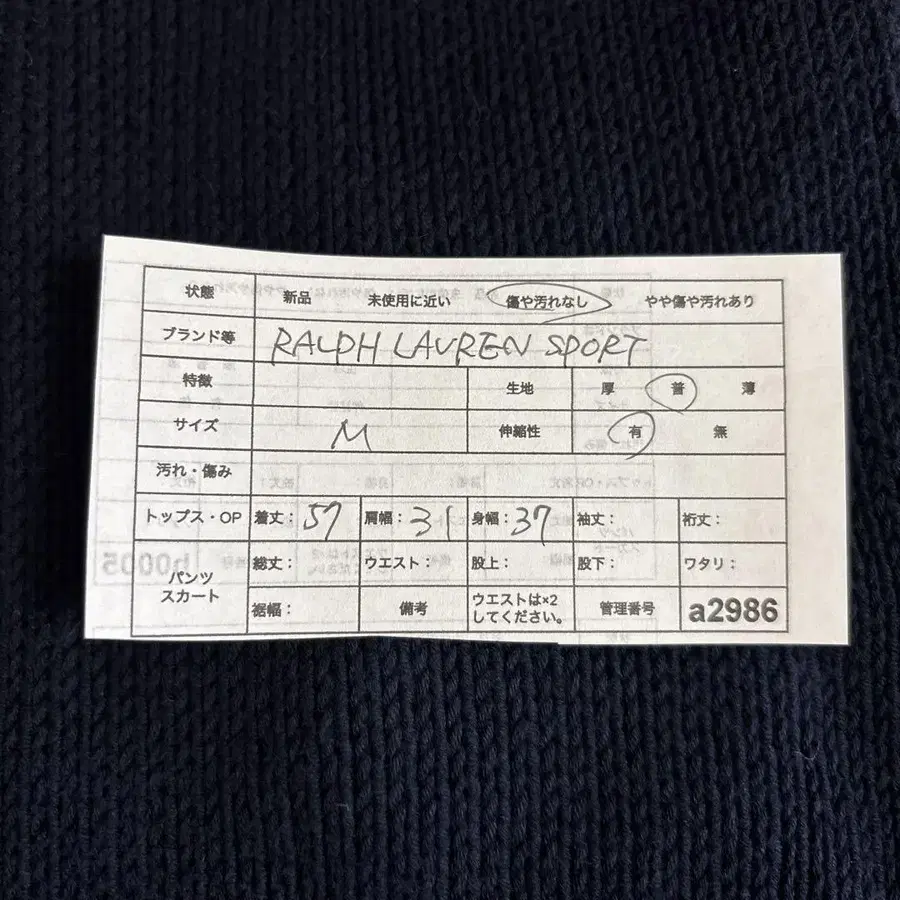 状態 新品 未使用に近い 傷や汚れなし やや傷や汚れあり
ブランド等 RALPH LAUREN SPORT
特徴 生地 厚 普 薄
サイズ M 伸縮性 有 無
汚れ・傷み
トップス・OP 着丈: 57 肩幅: 31 身幅: 37 袖丈: 裄丈:
パンツ
スカート
総丈: ウエスト: 股上: 股下: ワタリ:
裾幅: 備考 ウエストは×2
してください。 管理番号 a2986
h0005